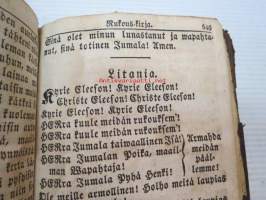 Rukous-kirja. 645
Sinä olet minun lunastanut ja wapahta-
nut, sinä totinen Jumala! Amen.
Litania.
Kyrie Eleeson! Kyrie Eleeson!
Christe Eleeson! Christe Eleeson!
Kyrie Eleeson! Kyrie Eleeson!
HERra kuule meidän rukouksem't!
HERra kuule meidän rukouksem't!
HERra Jumala taiwaallinen Isä! Armahda
HERra Jumalan Poika, maail- meidän
man Wapahtaja! pääl-
HERra Jumala Pyhä Henki! lemme!
Ole meille armollinen! Holho meitä laupias